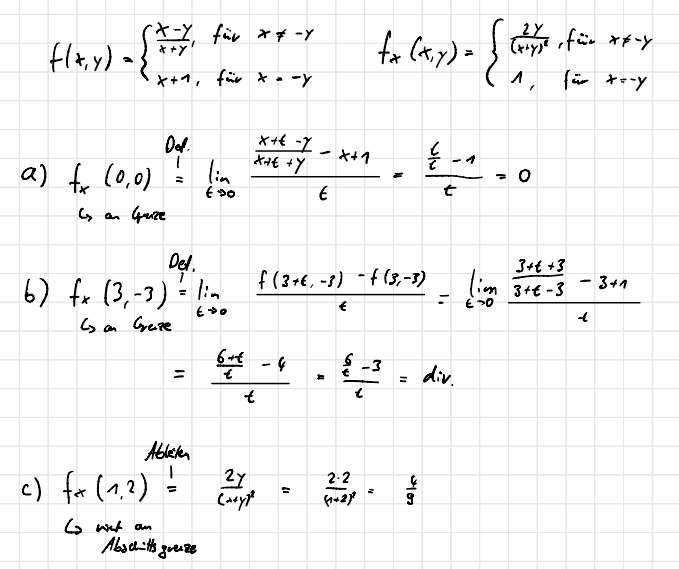 f(x,y) = { x-y/x+y, für x ≠ -y
x+1, für x = -y
f_x (x,y) = { 2y/(x+y)², für x≠-y
1, für x=-y
a) f_x (0,0) =^{Def.} lim_{t→0} (x+t-y/x+t+y - x+1)/t = (t/t - 1)/t = 0
↳ an Grenze
b) f_x (3,-3) =^{Def.} lim_{t→0} (f(3+t,-3) - f(3,-3))/t = lim_{t→0} (3+t+3/3+t-3 - 3+1)/t
↳ an Grenze
= (6+t/t - 4)/t = (6/t - 3)/t = div.
c) f_x (1,2) =^{Ableiten} 2y/(x+y)² = 2·2/(1+2)² = 4/9
↳ nicht an
Abschnittsgrenze